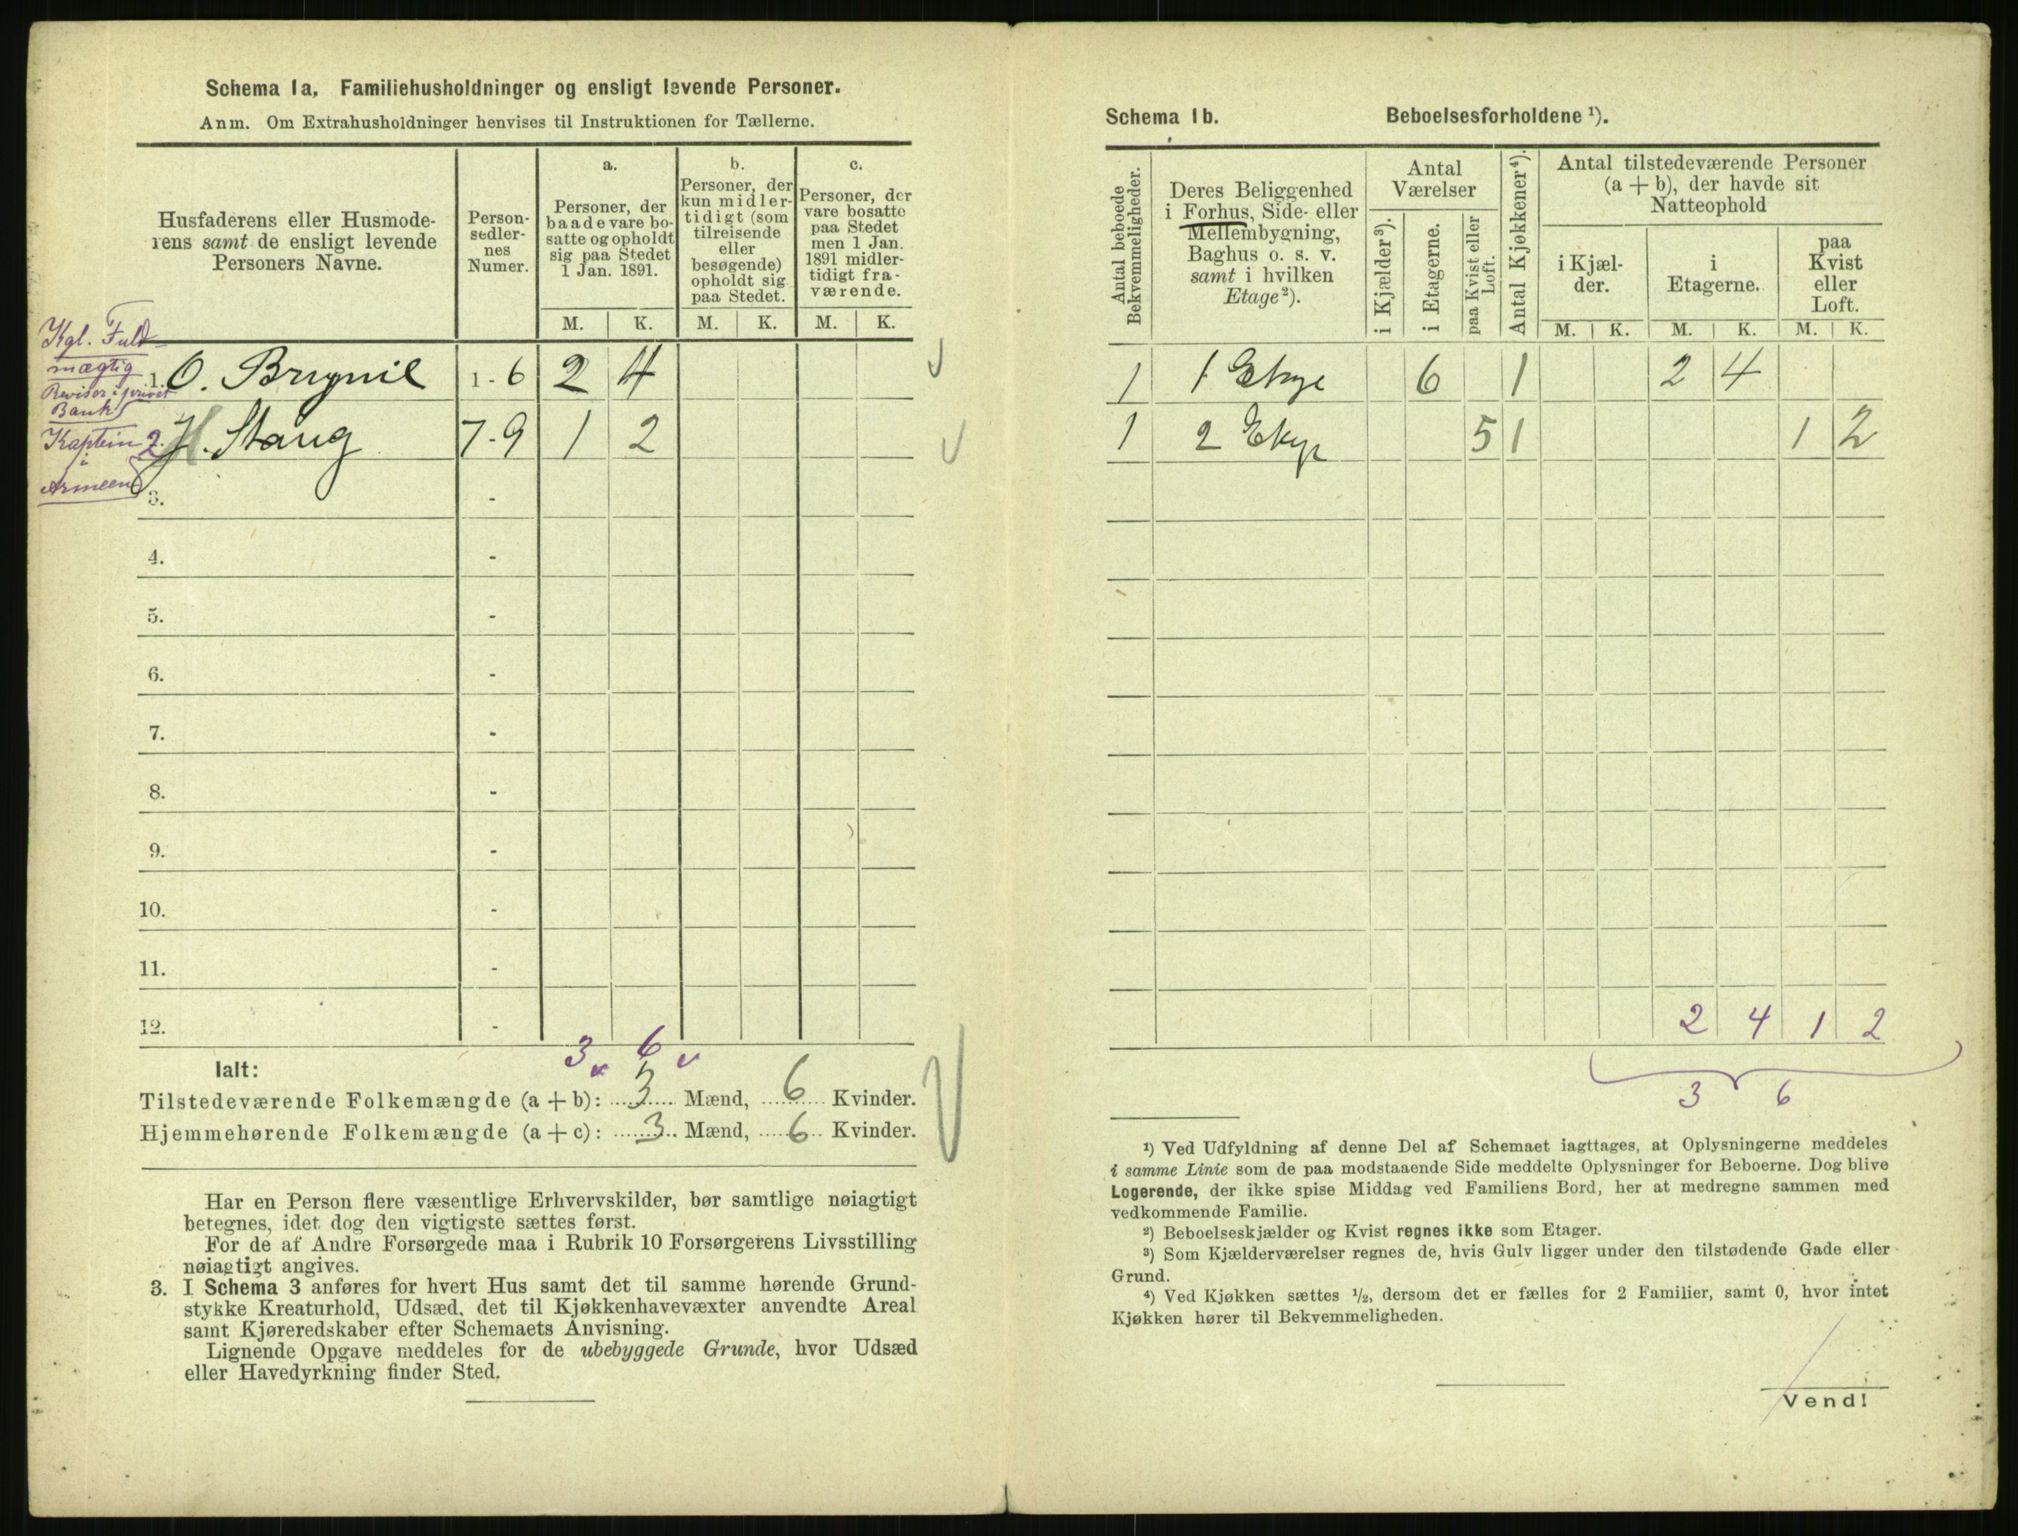 Schema 1a. Familiehusholdninger og ensligt levende Personer.
Anm. Om Extrahusholdninger henvises til Instruktionen for Tællerne.
Husfaderens eller Husmode-
rens samt de ensligt levende
Personers Navne.
Person-
sedler-
nes
Numer.
a.
Personer, der
baade vare bo-
satte og opholdt
sig paa Stedet
1 Jan. 1891.
b.
Personer, der
kun midler-
tidigt (som
tilreisende
eller
besøgende)
opholdt sig
paa Stedet.
c.
Personer, der
vare bosatte
paa Stedet
men 1 Jan.
1891 midler-
tidigt fra-
værende.
M. K. M. K. M. K.
Kgl. Fuld-
mægtig
Revisor i privat
Bank
1. O. Brynil 1-6 2 4
Kaptein
i
Armeen
2. H. Stang 7-9 1 2
3. -
4. -
5. -
6. -
7. -
8. -
9. -
10. -
11. -
12. -
3 6
Ialt:
Tilstedeværende Folkemængde (a + b): 3 Mænd, 6 Kvinder.
Hjemmehørende Folkemængde (a + c): 3 Mænd, 6 Kvinder.
Har en Person flere væsentlige Erhvervskilder, bør samtlige nøiagtigt
betegnes, idet dog den vigtigste sættes først.
For de af Andre Forsørgede maa i Rubrik 10 Forsørgerens Livsstilling
nøiagtigt angives.
3. I Schema 3 anføres for hvert Hus samt det til samme hørende Grund-
stykke Kreaturhold, Udsæd, det til Kjøkkenhavevæxter anvendte Areal
samt Kjøreredskaber efter Schemaets Anvisning.
Lignende Opgave meddeles for de ubebyggede Grunde, hvor Udsæd
eller Havedyrkning finder Sted.
Schema 1b. Beboelsesforholdene ¹).
Antal beboede
Bekvemmeligheder.
Deres Beliggenhed
i Forhus, Side- eller
Mellembygning,
Baghus o. s. v.
samt i hvilken
Etage²).
Antal
Værelser
i Kjælder³).
i Etagerne.
paa Kvist eller
Loft.
Antal Kjøkkener⁴).
Antal tilstedeværende Personer
(a + b), der havde sit
Natteophold
i Kjæl-
der.
i
Etagerne.
paa
Kvist
eller
Loft.
M. K. M. K. M. K.
1 1 Etage 6 1 2 4
1 2 Etage 5 1 1 2
2 4 1 2
3 6
¹) Ved Udfyldning af denne Del af Schemaet iagttages, at Oplysningerne meddeles
i samme Linie som de paa modstaaende Side meddelte Oplysninger for Beboerne. Dog blive
Logerende, der ikke spise Middag ved Familiens Bord, her at medregne sammen med
vedkommende Familie.
²) Beboelseskjælder og Kvist regnes ikke som Etager.
³) Som Kjælderværelser regnes de, hvis Gulv ligger under den tilstødende Gade eller
Grund.
⁴) Ved Kjøkken sættes ½, dersom det er fælles for 2 Familier, samt 0, hvor intet
Kjøkken hører til Bekvemmeligheden.
Vend!